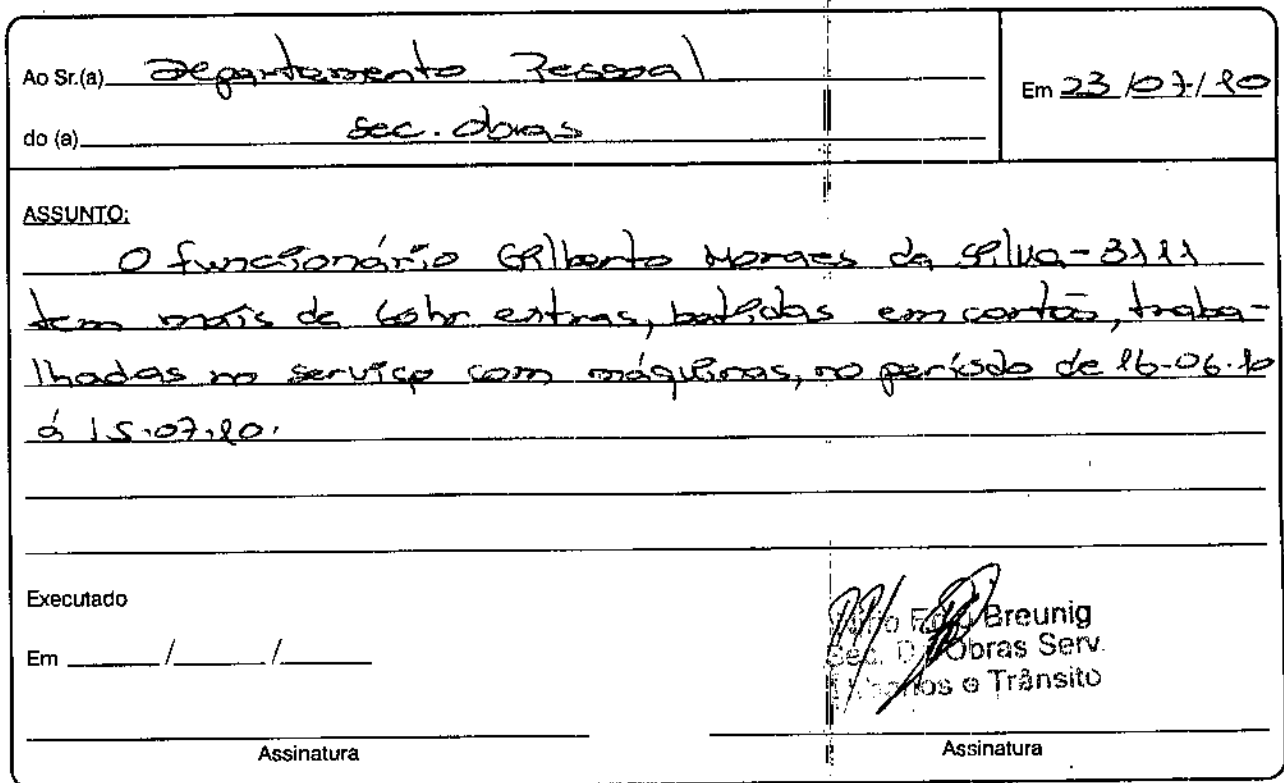 Ao Sr.(a) Departamento Pessoal
Em 23/07/10
do (a) Sec. Obras
ASSUNTO:
O funcionário Gilberto Moraes da Silva - 3111
tem mais de 60hr extras, batidas em cartão, traba-
lhadas no serviço com máquinas, no período de 16-06.10
á 15.07.10.
Executado
Em / /
Breunig
Sec. Obras Serv.
e Trânsito
Assinatura
Assinatura